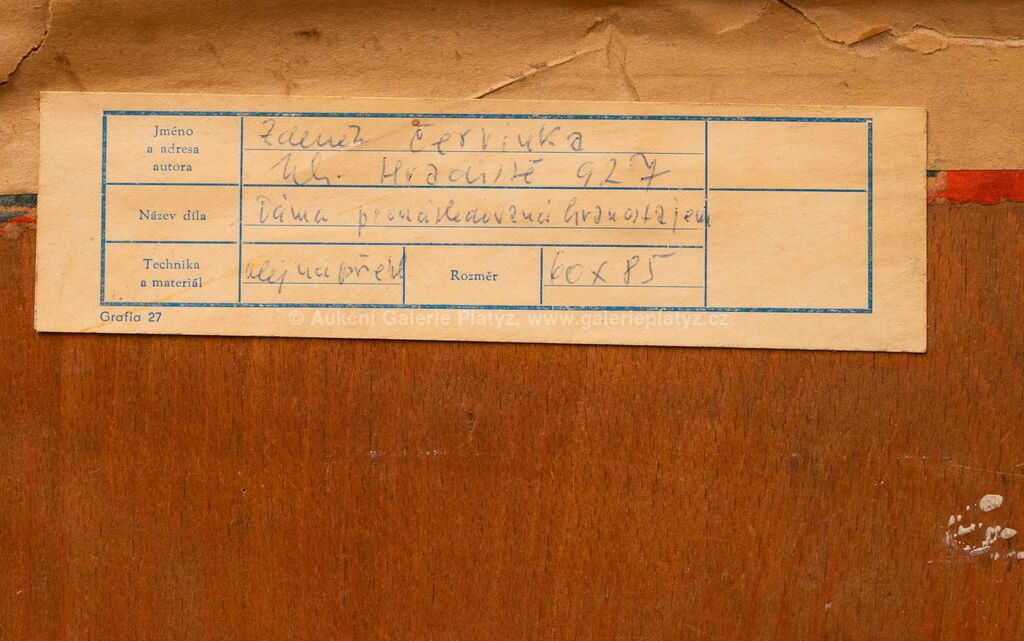 Jméno
a adresa
autora
Zdeněk Červinka
Uh. Hradiště 927
Název díla
Dáma pronásledovaná hranostajem
Technika
a materiál
olej na překl
Rozměr
60 x 85
Grafia 27
© Aukční Galerie Platýz, www.galerieplatyz.cz